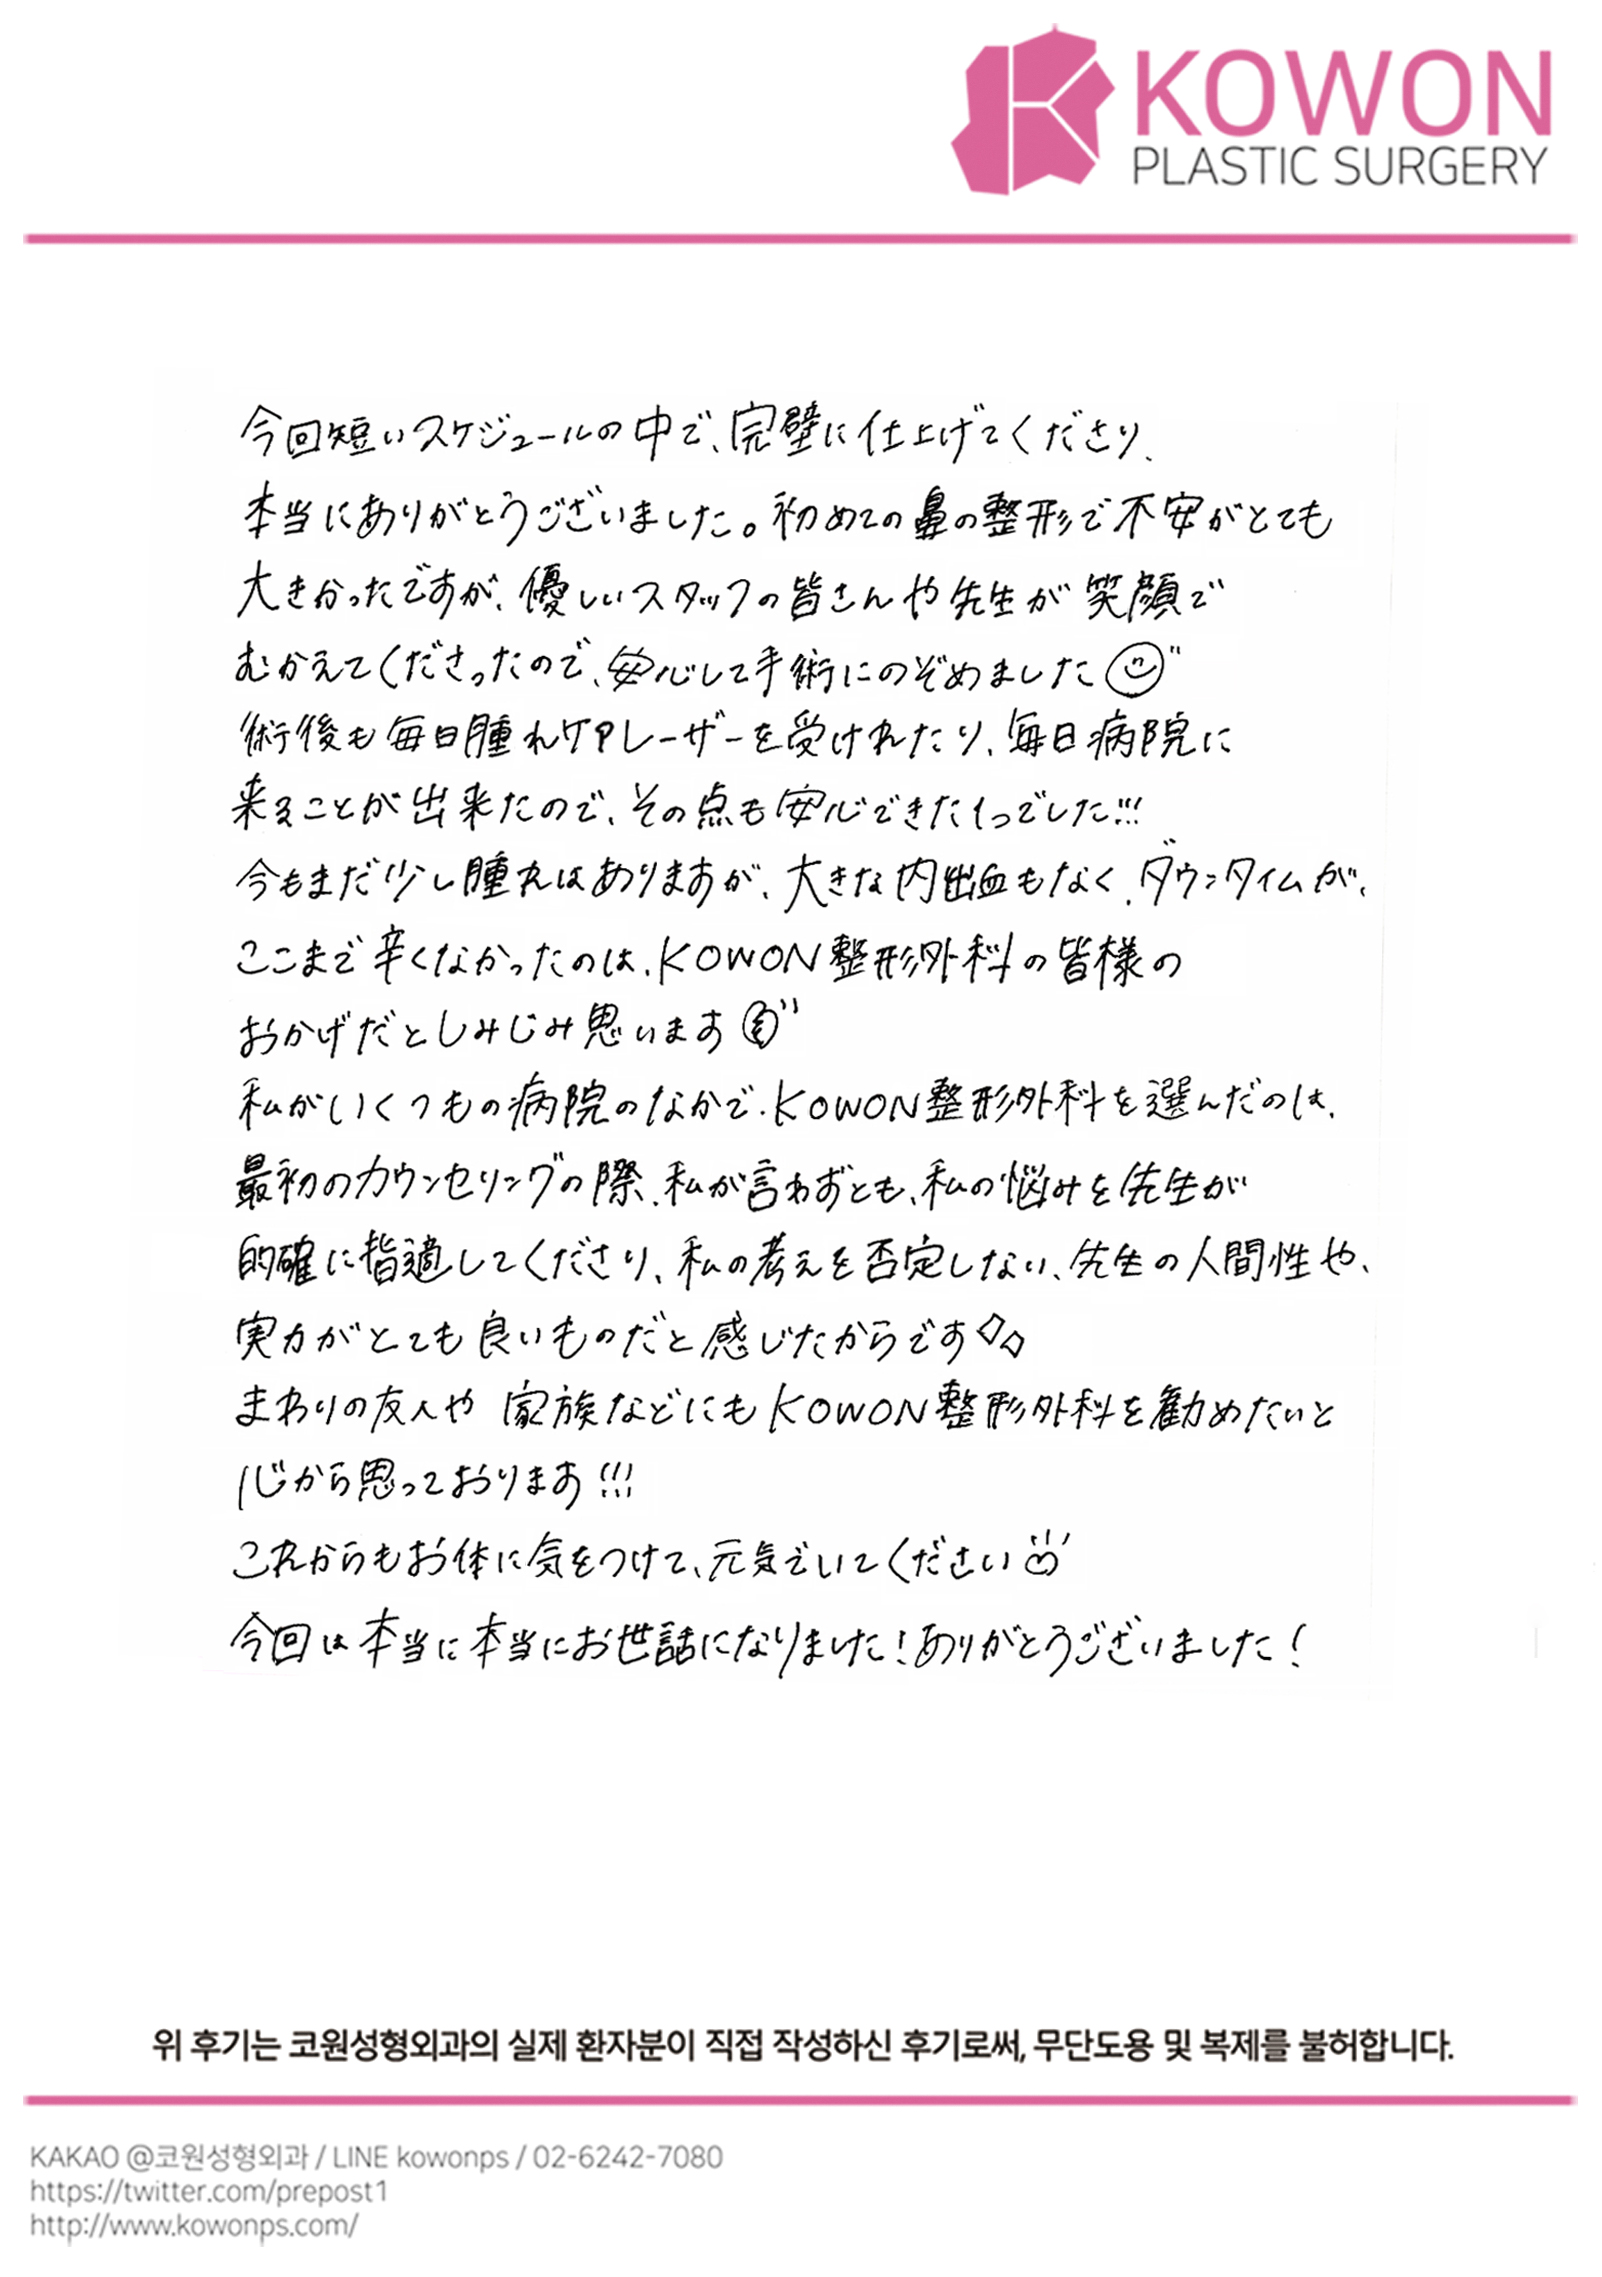 KOWON
PLASTIC SURGERY
今回短いスケジュールの中で、完璧に仕上げてくださり、
本当にありがとうございました。初めての鼻の整形で不安がとても
大きかったですが、優しいスタッフの皆さんや先生が笑顔で
むかえてくださったので、安心して手術にのぞめました
術後も毎日腫れケアレーザーを受けれたり、毎日病院に
来ることが出来たので、その点も安心できた1つでした!!!
今もまだ少し腫れはありますが、大きな内出血もなく、ダウンタイムが、
ここまで辛くなかったのは、KOWON整形外科の皆様の
おかげだとしみじみ思います
私がいくつもの病院のなかで、KOWON整形外科を選んだのは、
最初のカウンセリングの際、私が言わずとも、私の悩みを先生が
的確に指適してくださり、私の考えを否定しない、先生の人間性や、
実力がとても良いものだと感じたからです
まわりの友人や 家族などにもKOWON整形外科を勧めたいと
心から思っております!!!
これからもお体に気をつけて、元気でいてください
今回は本当に本当にお世話になりました!ありがとうございました!
위 후기는 코원성형외과의 실제 환자분이 직접 작성하신 후기로써, 무단도용 및 복제를 불허합니다.
KAKAO @코원성형외과 / LINE kowonps / 02-6242-7080
https://twitter.com/prepost1
http://www.kowonps.com/